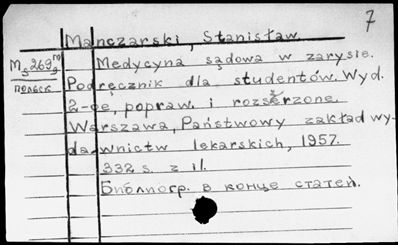 7
Manczarski, Stanisław.
M 5 269 m/9 Medycyna sądowa w zarysie.
польск Podręcznik dla studentów. Wyd.
2-ge, popraw. i rozszerzone.
Warszawa, Państwowy zakład wy-
dawnictw lekarskich, 1957.
332 s. z il.
Библиогр. в конце статей.